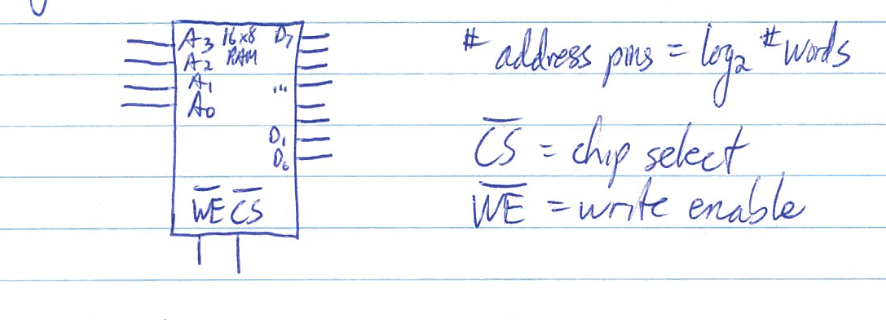 A3 16x8 D7
A2 RAM
A1 ...
A0
D1
D0
W̅E̅ C̅S̅
# address pins = log2 # words
C̅S̅ = chip select
W̅E̅ = write enable